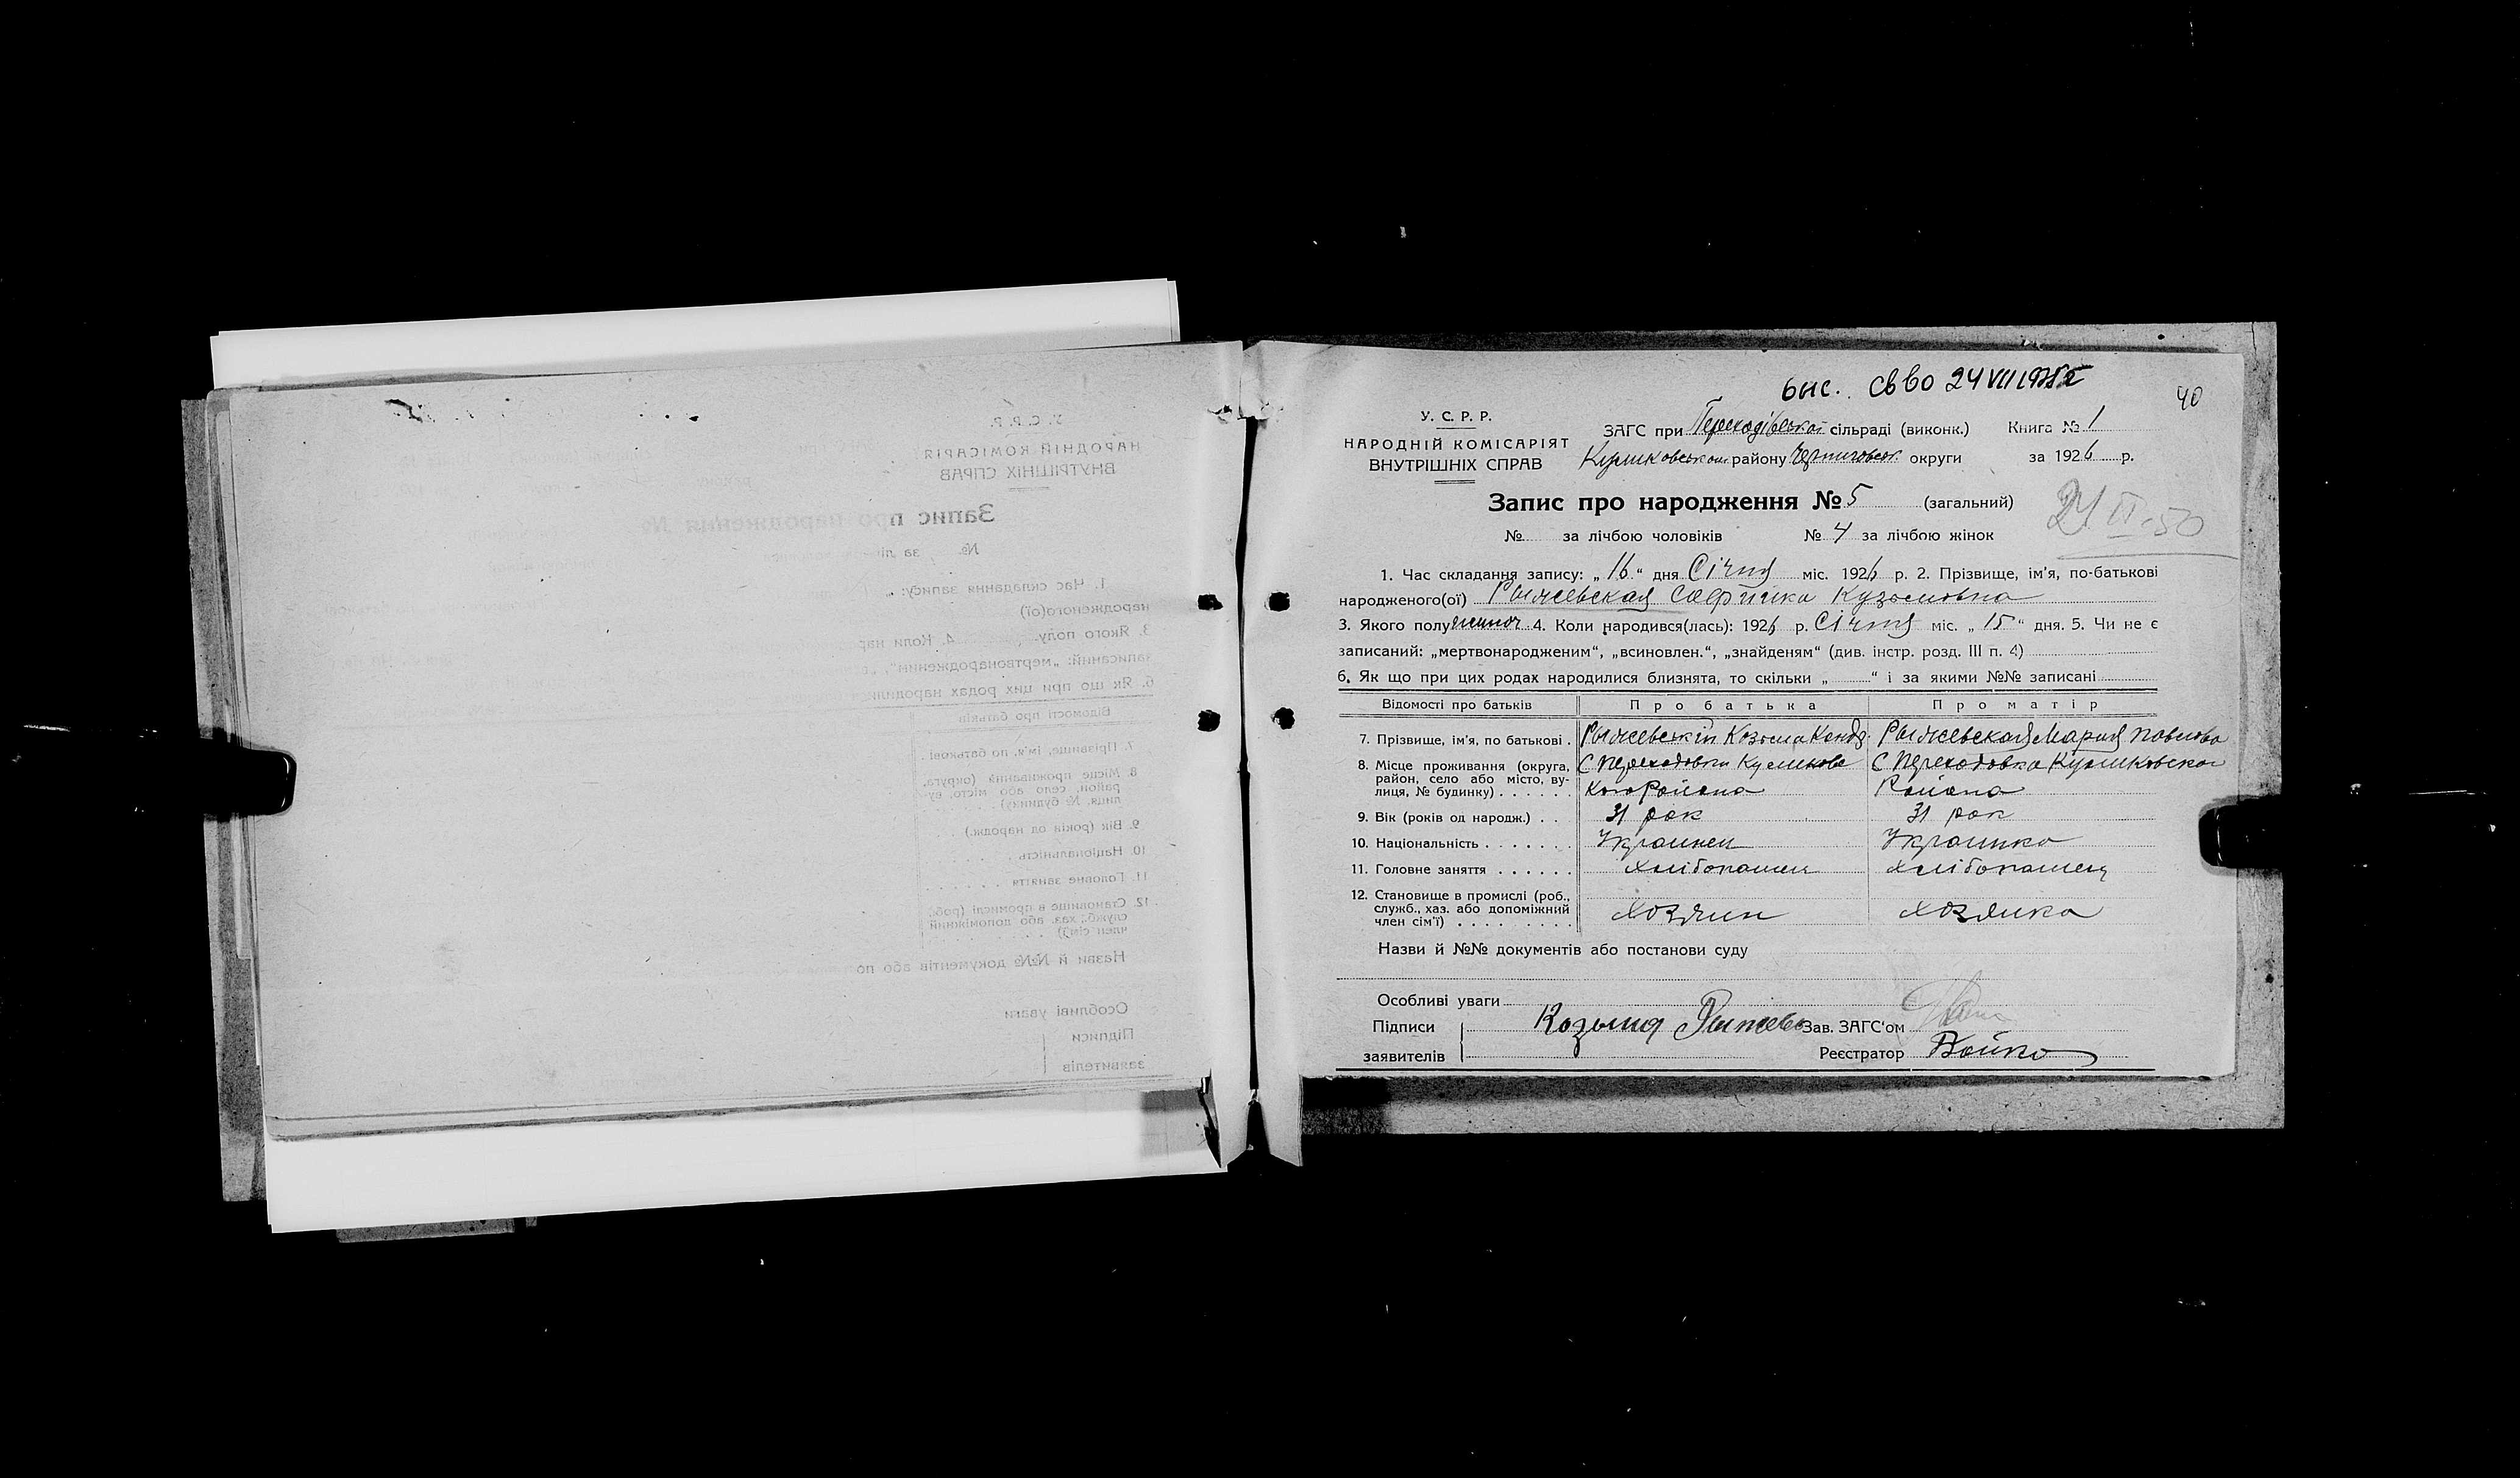 выс. св во 24 VII 1935 г
40
У. С. Р. Р.
НАРОДНІЙ КОМІСАРІЯТ
ВНУТРІШНІХ СПРАВ
ЗАГС при Переходівської сільраді (виконк.) Книга № 1
Куликовськом району Черниговськ округи за 1926 р.
Запис про народження № 5 (загальний)
21 II-50
№ за лічбою чоловіків № 4 за лічбою жінок
1. Час складання запису: „16“ дня Січня міс. 1926 р. 2. Прізвище, ім'я, по-батькові
народженого(ої) Рыжевская Кузьмовна
3. Якого полу жиноч. 4. Коли народився(лась): 1926 р. Січня міс. „15“ дня. 5. Чи не є
записаний: „мертвонародженим“, „всиновлен.“, „знайденям“ (див. інстр. розд. III п. 4)
6. Як що при цих родах народилися близнята, то скільки „ “ і за якими №№ записані
Відомості про батьків Про батька Про матір
7. Прізвище, ім'я, по батькові . Рыжевський Козьма Конд. Рыжевская Мария Павлова
8. Місце проживання (округа, район, село або місто, вулиця, № будинку) . . . . . .
С Переходовки Куликовс
кого Района
С Переходовка Куликовског
Района
9. Вік (років од народж.) . . 31 рок 31 рок
10. Національність . . . . . . . Украинец Украинка
11. Головне заняття . . . . . . Хлібопашец Хлібопашец
12. Становище в промислі (роб.,
служб., хаз. або допоміжний
член сім'ї) . . . . . . . . . Хозяин Хозяика
Назви й №№ документів або постанови суду
Особливі уваги
Підписи Козьма Рыжевс Зав. ЗАГС'ом
заявителів Реєстратор Бойко